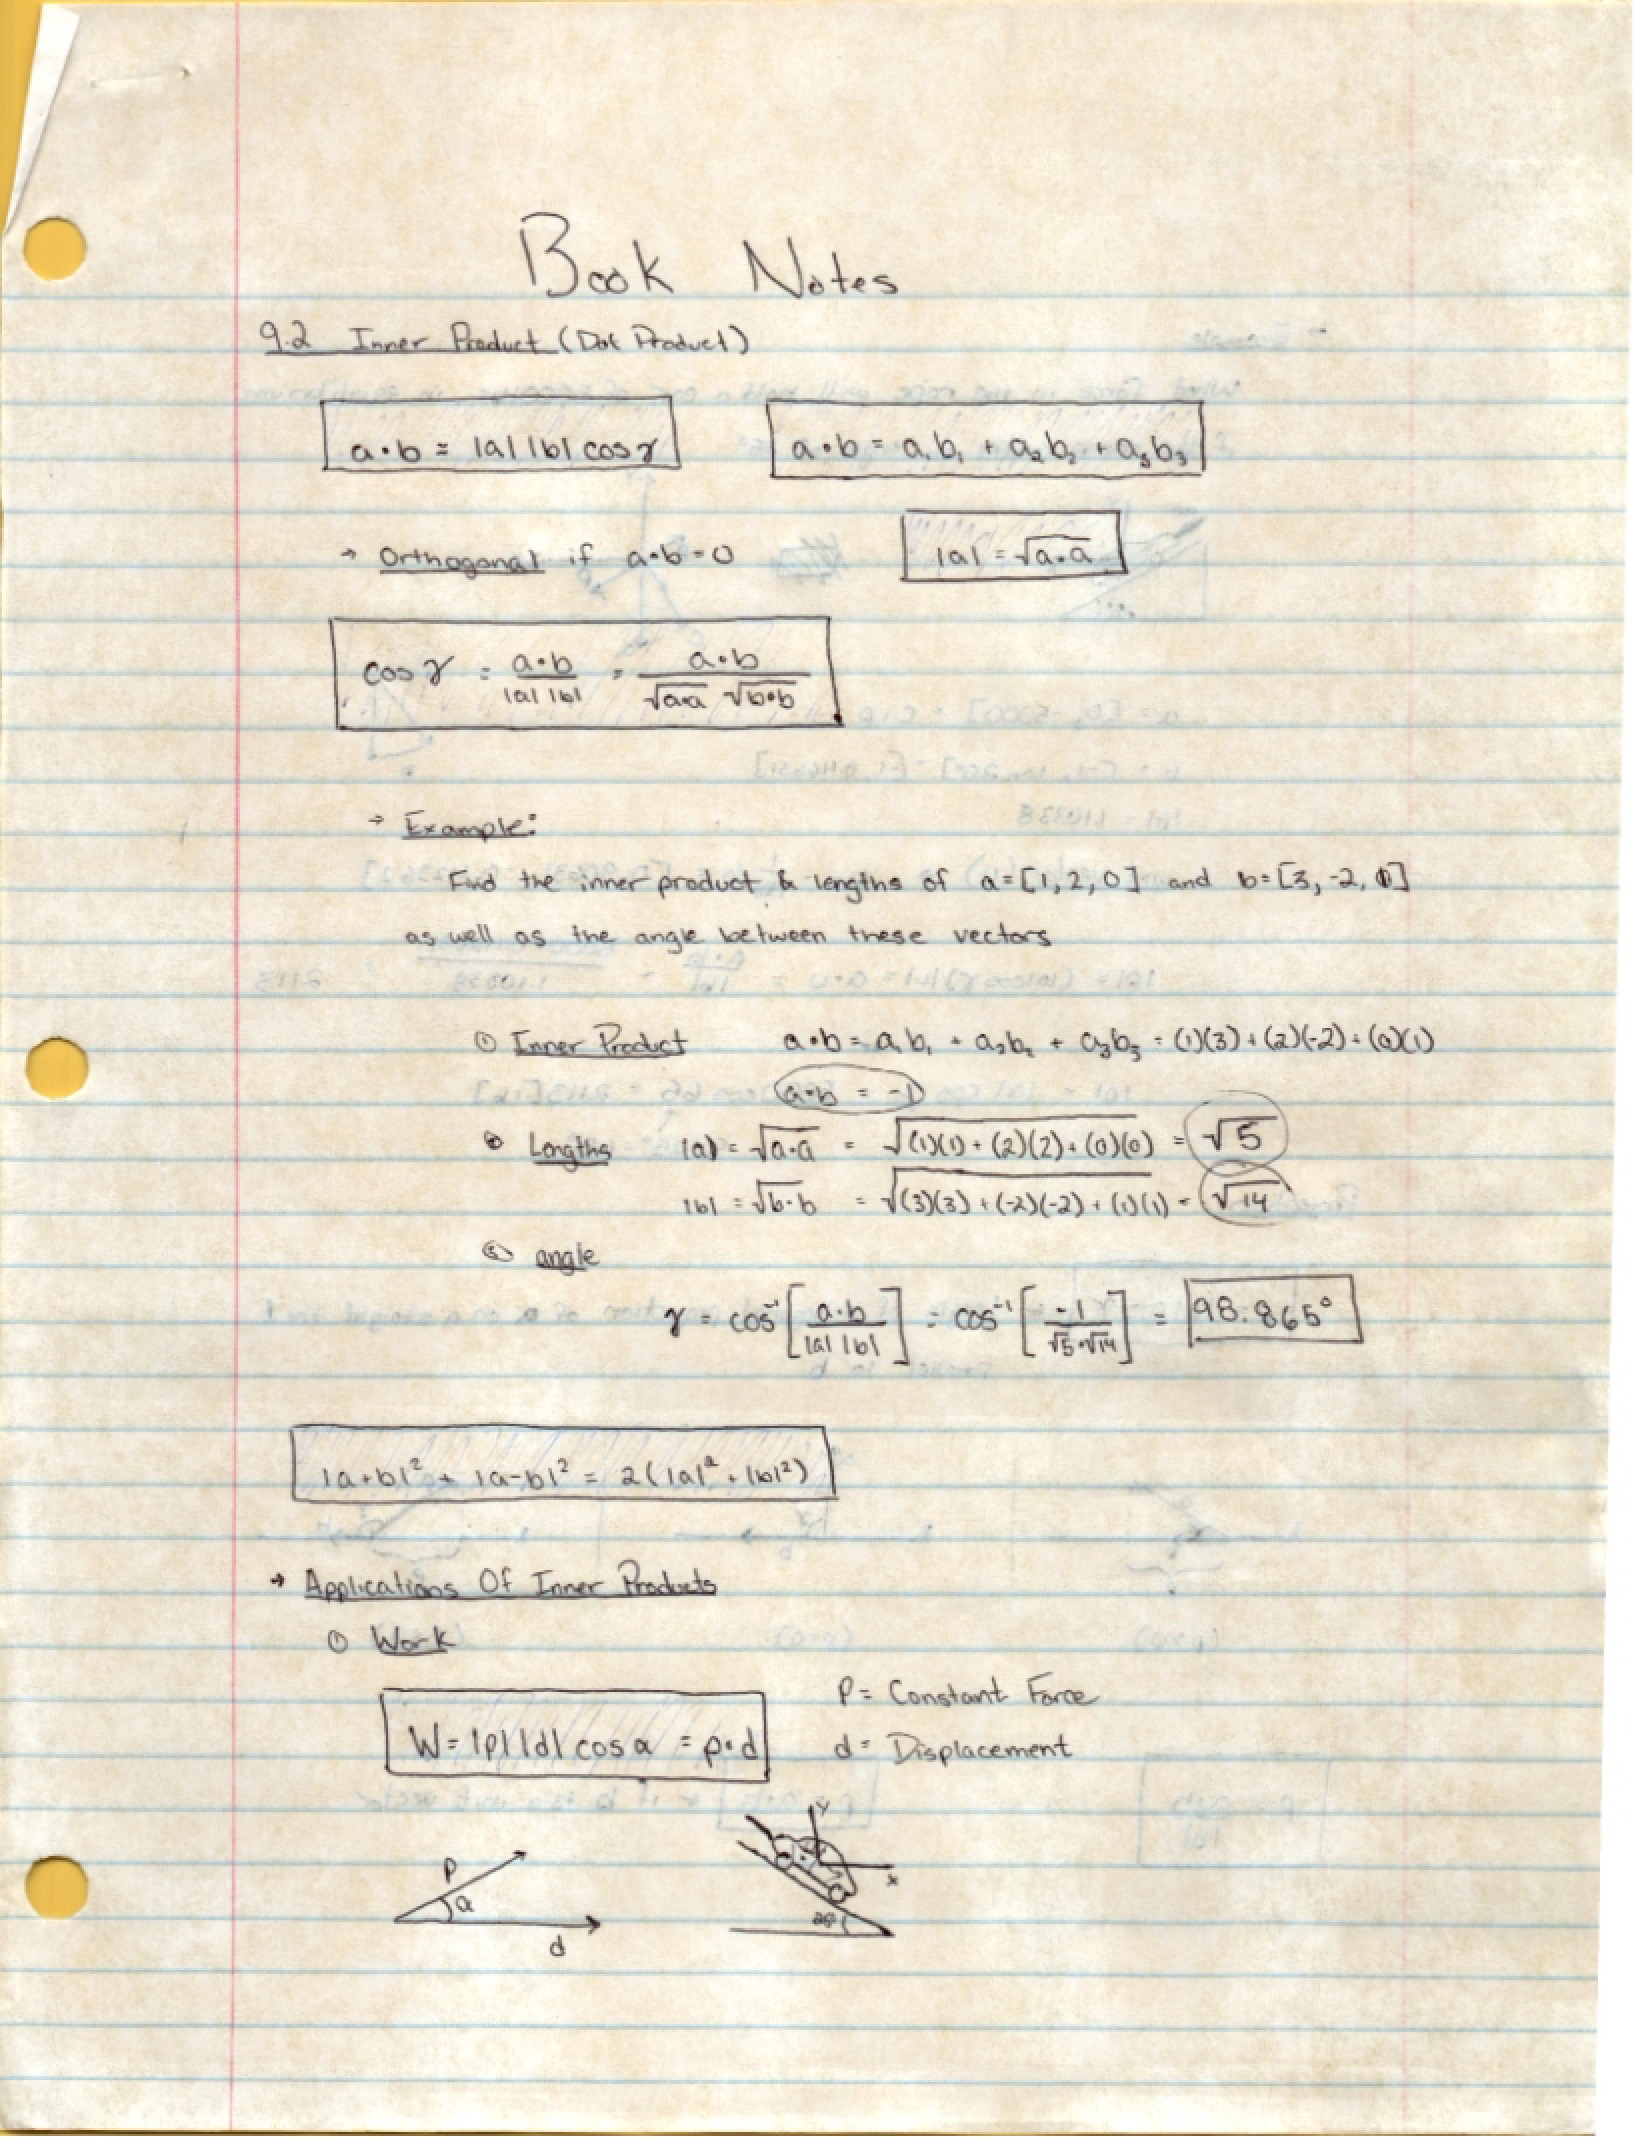 Book Notes
9.2 Inner Product (Dot Product)
a•b = |a| |b| cos γ
a•b = a₁b₁ + a₂b₂ + a₃b₃
→ Orthogonal if a•b = 0
|a| = √a•a
cos γ = a•b / |a| |b| = a•b / √a•a √b•b
→ Example:
Find the inner product & lengths of a=[1, 2, 0] and b=[3, -2, 1]
as well as the angle between these vectors
① Inner Product a•b = a₁b₁ + a₂b₂ + a₃b₃ = (1)(3) + (2)(-2) + (0)(1)
a•b = -1
② Lengths |a| = √a•a = √(1)(1) + (2)(2) + (0)(0) = √5
|b| = √b•b = √(3)(3) + (-2)(-2) + (1)(1) = √14
③ angle
γ = cos⁻¹[a•b / |a| |b|] = cos⁻¹[-1 / √5•√14] = 98.865°
|a+b|² + |a-b|² = 2(|a|² + |b|²)
→ Applications Of Inner Products
① Work
W = |p| |d| cos α = p•d
P = Constant Force
d = Displacement
P
α
d
y
x